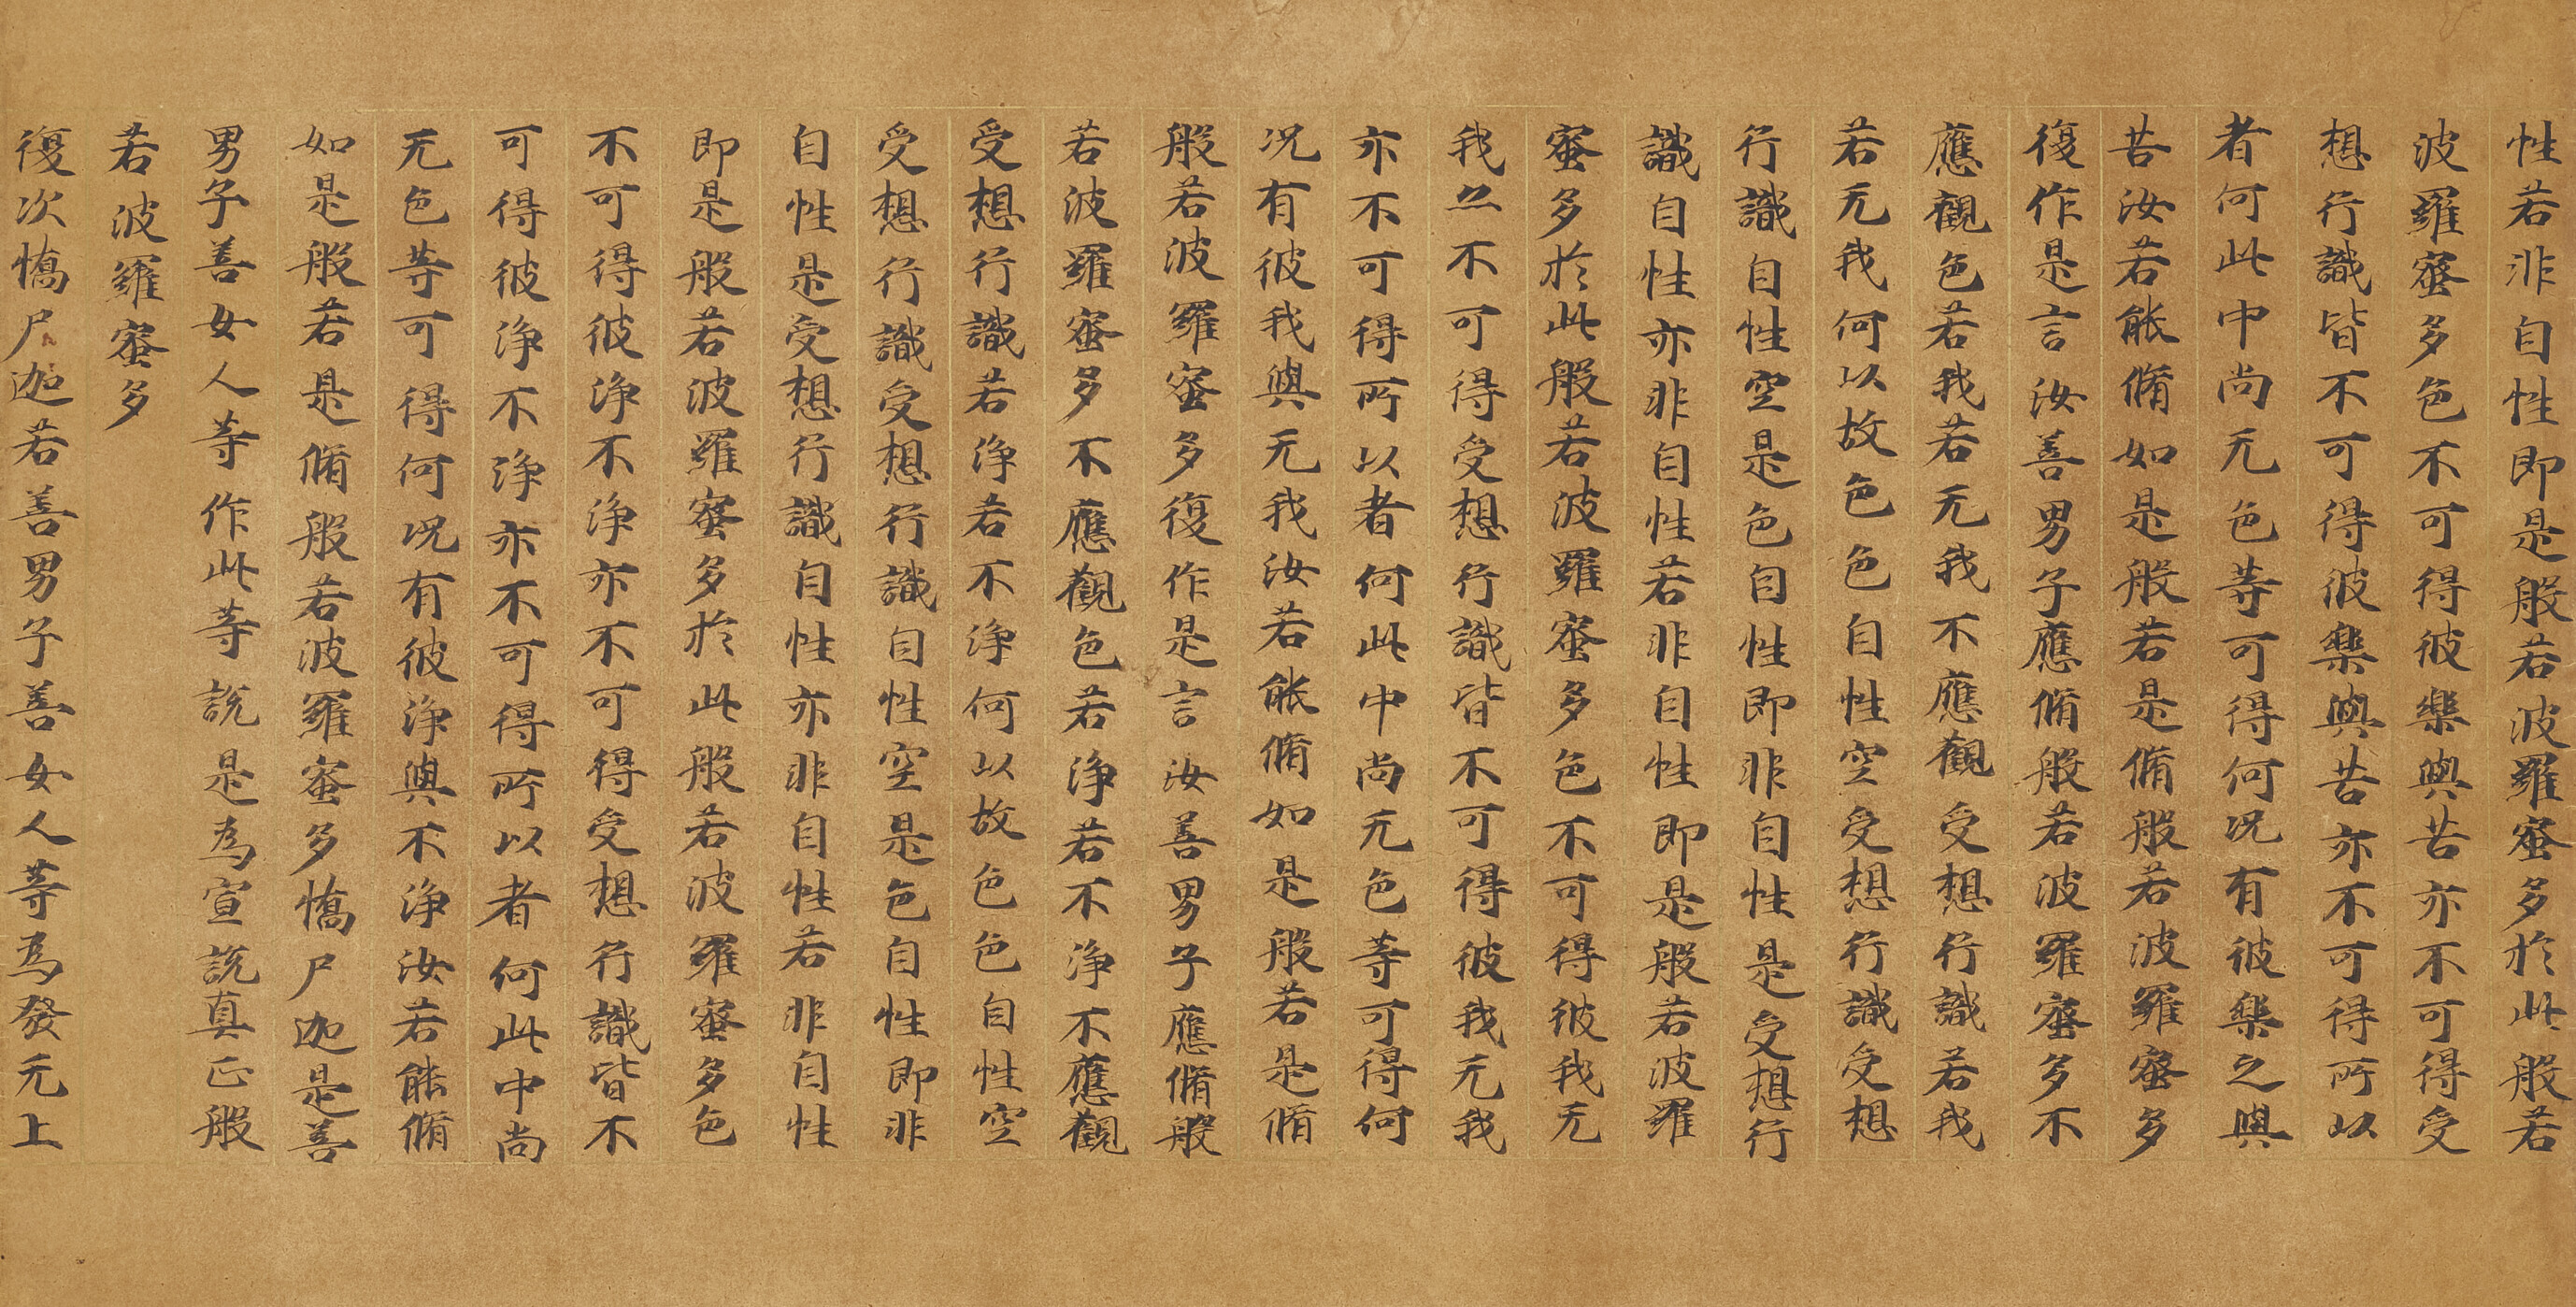 性若非自性即是般若波羅蜜多於此般若
波羅蜜多色不可得彼樂與苦亦不可得受
想行識皆不可得彼樂與苦亦不可得所以
者何此中尚无色等可得何況有彼樂之與
苦汝若能脩如是般若是脩般若波羅蜜多
復作是言汝善男子應脩般若波羅蜜多不
應觀色若我若无我不應觀受想行識若我
若无我何以故色色自性空受想行識受想
行識自性空是色自性即非自性是受想行
識自性亦非自性若非自性即是般若波羅
蜜多於此般若波羅蜜多色不可得彼我无
我亦不可得受想行識皆不可得彼我无我
亦不可得所以者何此中尚无色等可得何
况有彼我與无我汝若能脩如是般若是脩
般若波羅蜜多復作是言汝善男子應脩般
若波羅蜜多不應觀色若淨若不淨不應觀
受想行識若淨若不淨何以故色色自性空
受想行識受想行識自性空是色自性即非
自性是受想行識自性亦非自性若非自性
即是般若波羅蜜多於此般若波羅蜜多色
不可得彼淨不淨亦不可得受想行識皆不
可得彼淨不淨亦不可得所以者何此中尚
无色等可得何况有彼淨與不淨汝若能脩
如是般若是脩般若波羅蜜多憍尸迦是善
男子善女人等作此等說是為宣說真正般
若波羅蜜多
復次憍尸迦若善男子善女人等為發无上